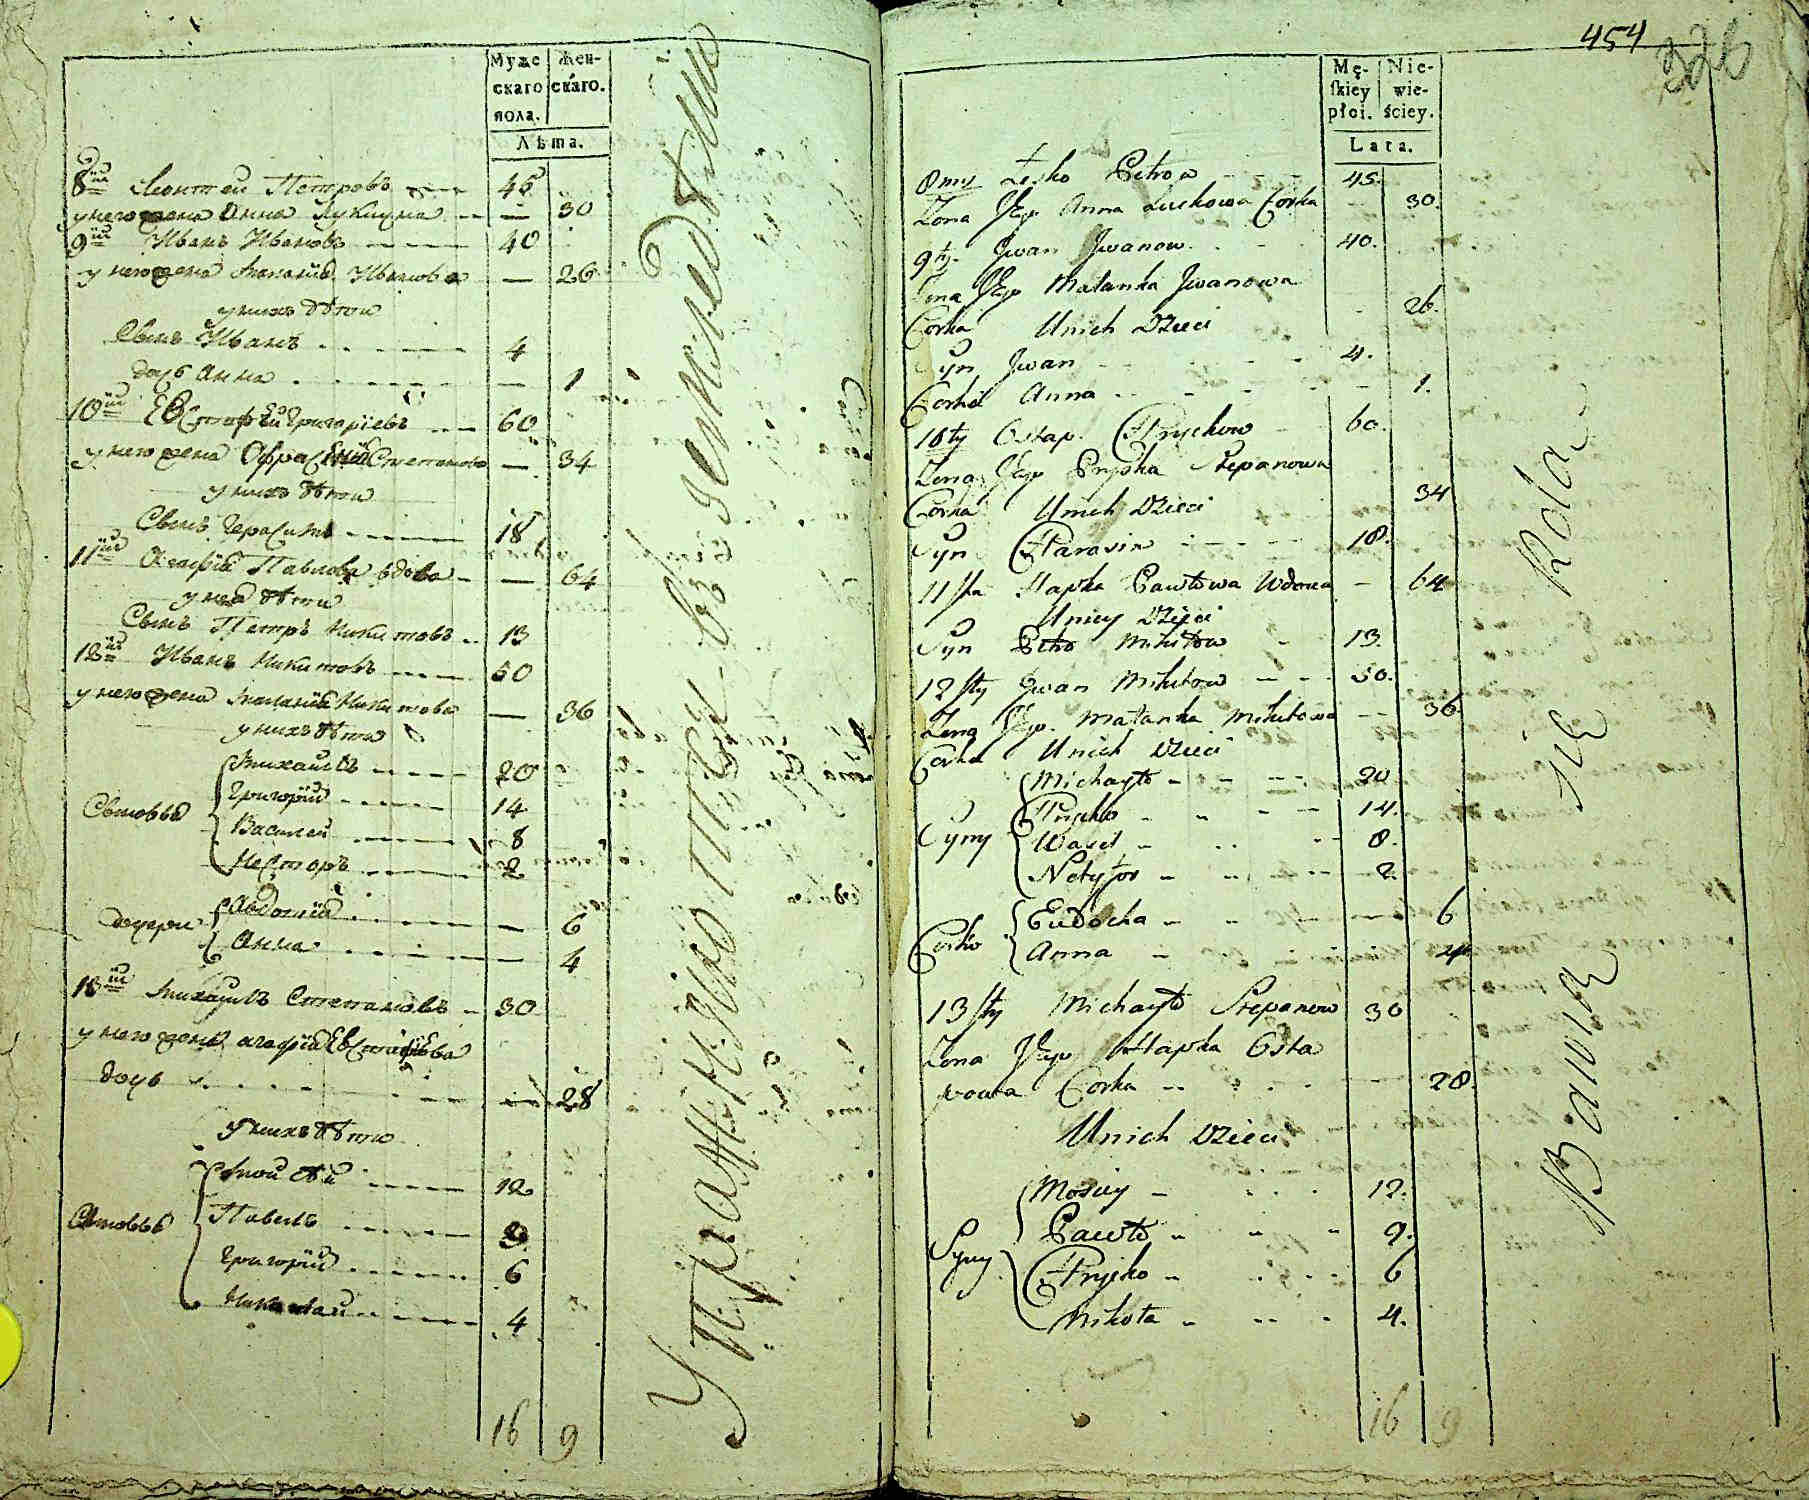 Муже
скаго
пола.
Жен-
скаго.
Лѣта.
8й Леонтей Петровъ 45
у него жена Анна Лукина — 30
9й Иванъ Ивановъ 40
у него жена Маланія Иванова — 26
у нихъ дѣти
Сынъ Иванъ 4
дочь Анна — 1
10й Евстафій Григоріевъ 60
у него жена Офрасенія Степанова — 34
у нихъ дѣти
Сынъ Герасимъ 18
11й Агафія Павлова вдова — 64
у нея дѣти
Сынъ Петръ Никитовъ 13
12й Иванъ Никитовъ 50
у него жена Маланія Никитова — 36
у нихъ дѣти
Михайлъ 20
Григорій 14
Сыновья
Василей 8
Несторъ 2
Авдотія — 6
дочери
Анна — 4
13й Михайлъ Степановъ 30
у него жена агафія Евстафіева
дочь — 28
у нихъ дѣти
Мойсѣй 12
Сыновья Павелъ 9
Григорій 6
Николай 4
16 9
Упражняются въ земледѣліи
454
226
Mę-
skiey
płci.
Nie-
wie-
ściey.
Lata.
8my Leśko Petrow 45.
Zona Jego Anna Luckowa Corka 30.
9ty Jwan Jwanow 40.
Zona Jego Małanka Jwanowa
Corka 26.
Unich Dzieci
Syn Jwan 4.
Corka Anna 1.
10ty Ostap Hryckow 60.
Zona Jego Prypka Stepanowa
Corka 34
Unich Dzieci
Syn Harasim 18.
11sta Hapka Pawłowa Wdowa 64
Uniey Dzieci
Syn Petro Mikitow 13.
12sty Jwan Mikitow 50.
Zona Jego Małanka Mikitowa 36.
Corka Unich Dzieci
Michayło 20
Hryćko 14.
Syny
Wasil 8.
Netyfor 2.
Eudocha 6
Corki
Anna 4
13sty Michayło Stepanow 30
Zona Jego Hapka Osta
powa Corka 28.
Unich Dzieci
Mosiey 12.
Pawło 9.
Syny
Hryćko 6
Mikoła 4.
16 9
Bawią się Rolą